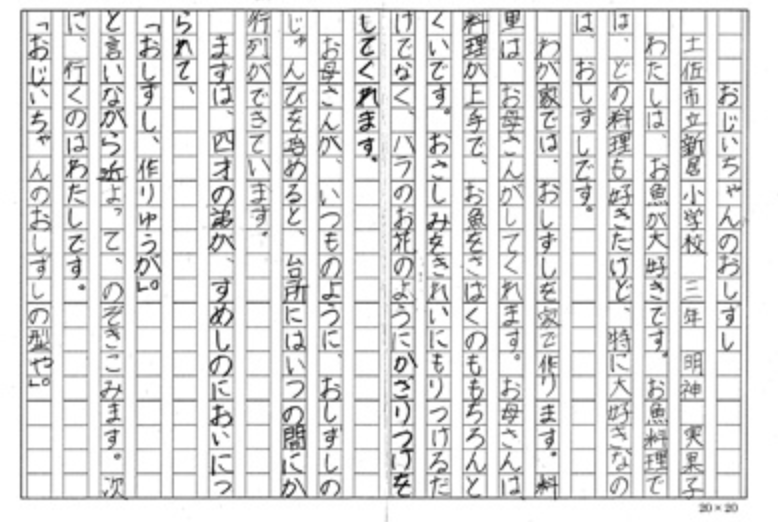 おじいちゃんのおしずし
土佐市立新居小学校 三年 明神 実果子
わたしは、お魚が大好きです。お魚料理で
は、どの料理も好きだけど、特に大好きなの
は、おしずしです。
わが家では、おしずしを家で作ります。料
理は、お母さんがしてくれます。お母さんは、
料理が上手で、お魚をさばくのももちろんと
くいです。おさしみをきれいにもりつけるだ
けでなく、バラのお花のようにかざりつけを
もしてくれます。
お母さんが、いつものように、おしずしの
じゅんびを始めると、台所にはいつの間にか
行列ができています。
まずは、四才の弟が、すめしのにおいにつ
られて、
「おしずし、作りゅうが。」
と言いながら近よって、のぞきこみます。次
に、行くのはわたしです。
「おじいちゃんのおしずしの型や。」
20×20